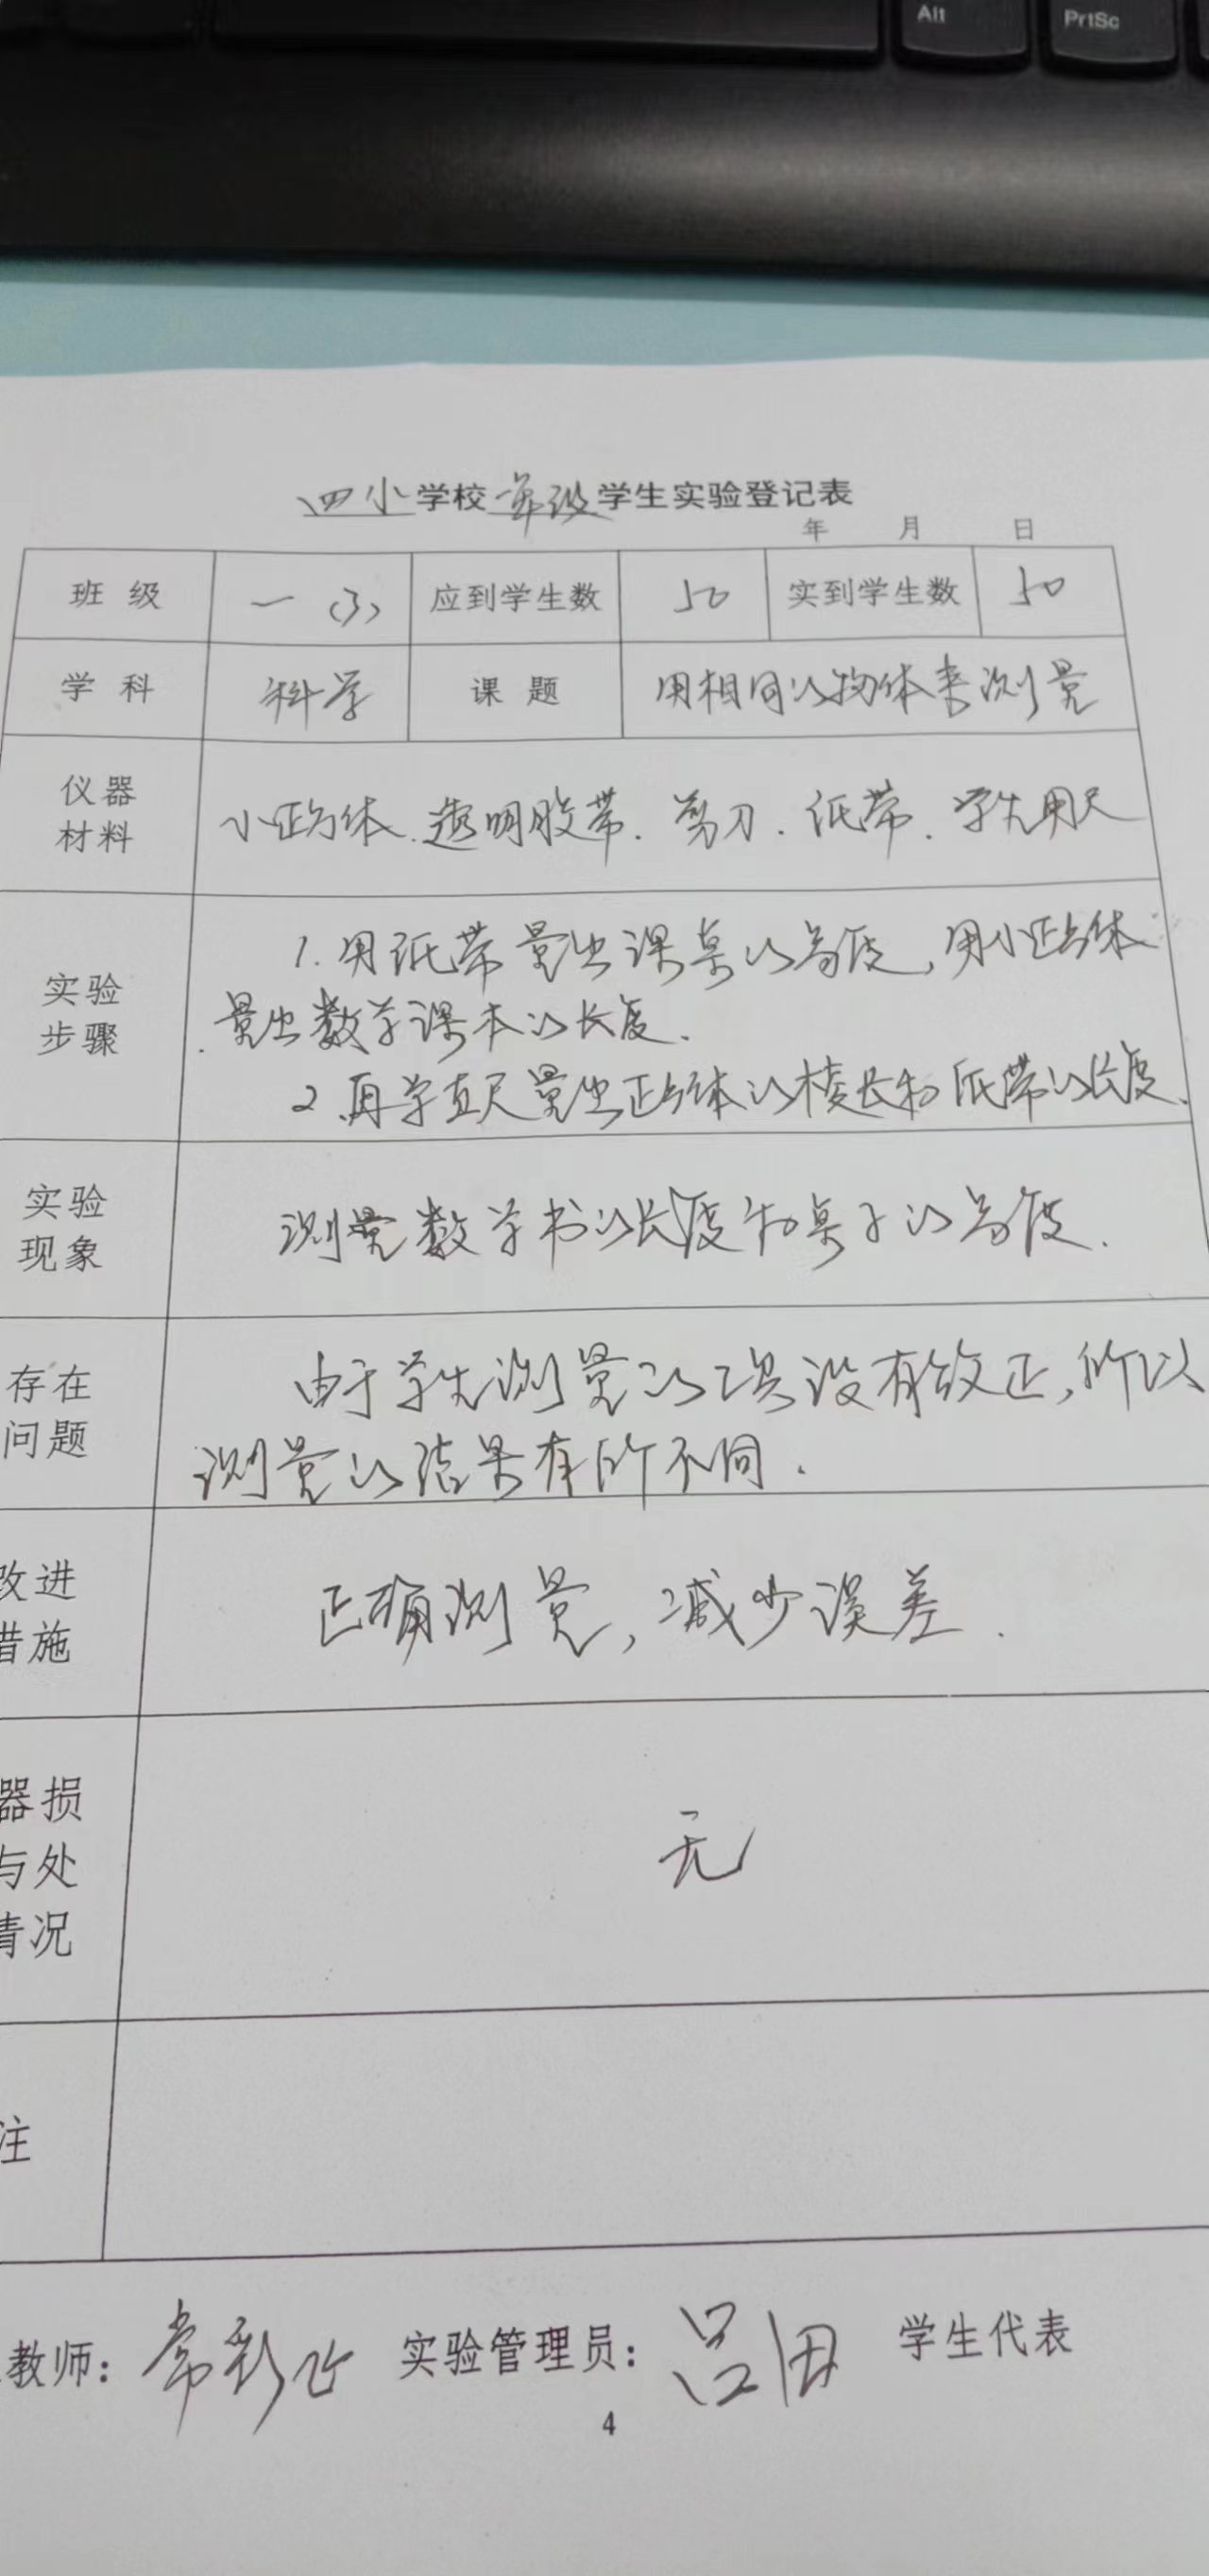 Alt
PrtSc
四小学校一年级学生实验登记表
年 月 日
班 级 一(3) 应到学生数 50 实到学生数 50
学 科 科学 课 题 用相同的物体来测量
仪器
材料
小正方体、透明胶带、剪刀、纸带、学生用尺
实验
步骤
1.用纸带量出课桌的高度,用小正方体
量出数学课本的长度.
2.再学直尺量出正方体的棱长和纸带的长度.
实验
现象
测量数学书的长度和桌子的高度.
存在
问题
由于学生测量的 没有校正,所以
测量的结果有所不同.
改进
措施
正确测量,减少误差.
器损
与处
情况
无
注
教师: 常彩 实验管理员: 吕 学生代表
4